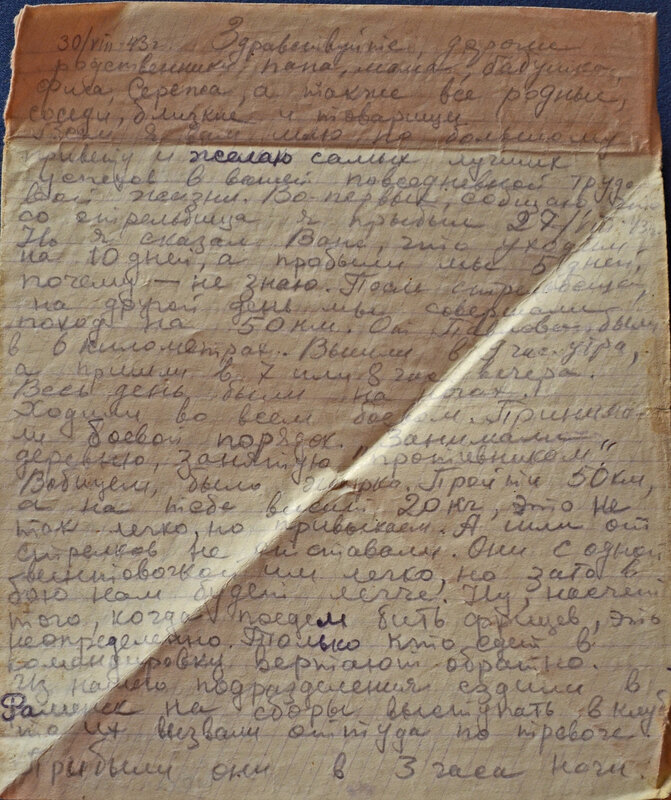 30/VIII-43г. Здравствуйте, дорогие
родственники папа, мама, бабушка,
Сережа, а также все родные,
соседи, близкие и товарищи
шлю по большому
привету и желаю самых лучших
успехов в вашей повседневной трудо
вой жизни. Во-первых, сообщаю, что
со стрельбища я прибыл 27/VIII-43г.
Но я сказал Вам, что уходим
на 10 дней, а пробыли мы 5 дней,
почему — не знаю. После стрельбища,
на другой день мы совершали
поход на 50 км. От были
в 6 километрах. Вышли в час. утра,
а пришли в 7 или 8 час. вечера.
Весь день были на ногах.
Ходили во всем боевом. Принима
ли боевой порядок. Занимали
деревню, занятую "противником".
Вобщем, было жарко. Пройти 50 км,
а на тебе висит 20 кг, это не
так легко, но привыкаем. А шли от
стрелков не отставали. Они с одной
винтовочкой им легко, но зато в
бою нам будет легче. Ну, насчет
того, когда поедем бить фрицев, это
неопределенно. Только кто едет в
командировку вертают обратно.
Из нашего подразделения ездили в
Раменск на сборы выступать в клу
то их вызвали оттуда по тревоге.
Прибыли они в 3 часа ночи.